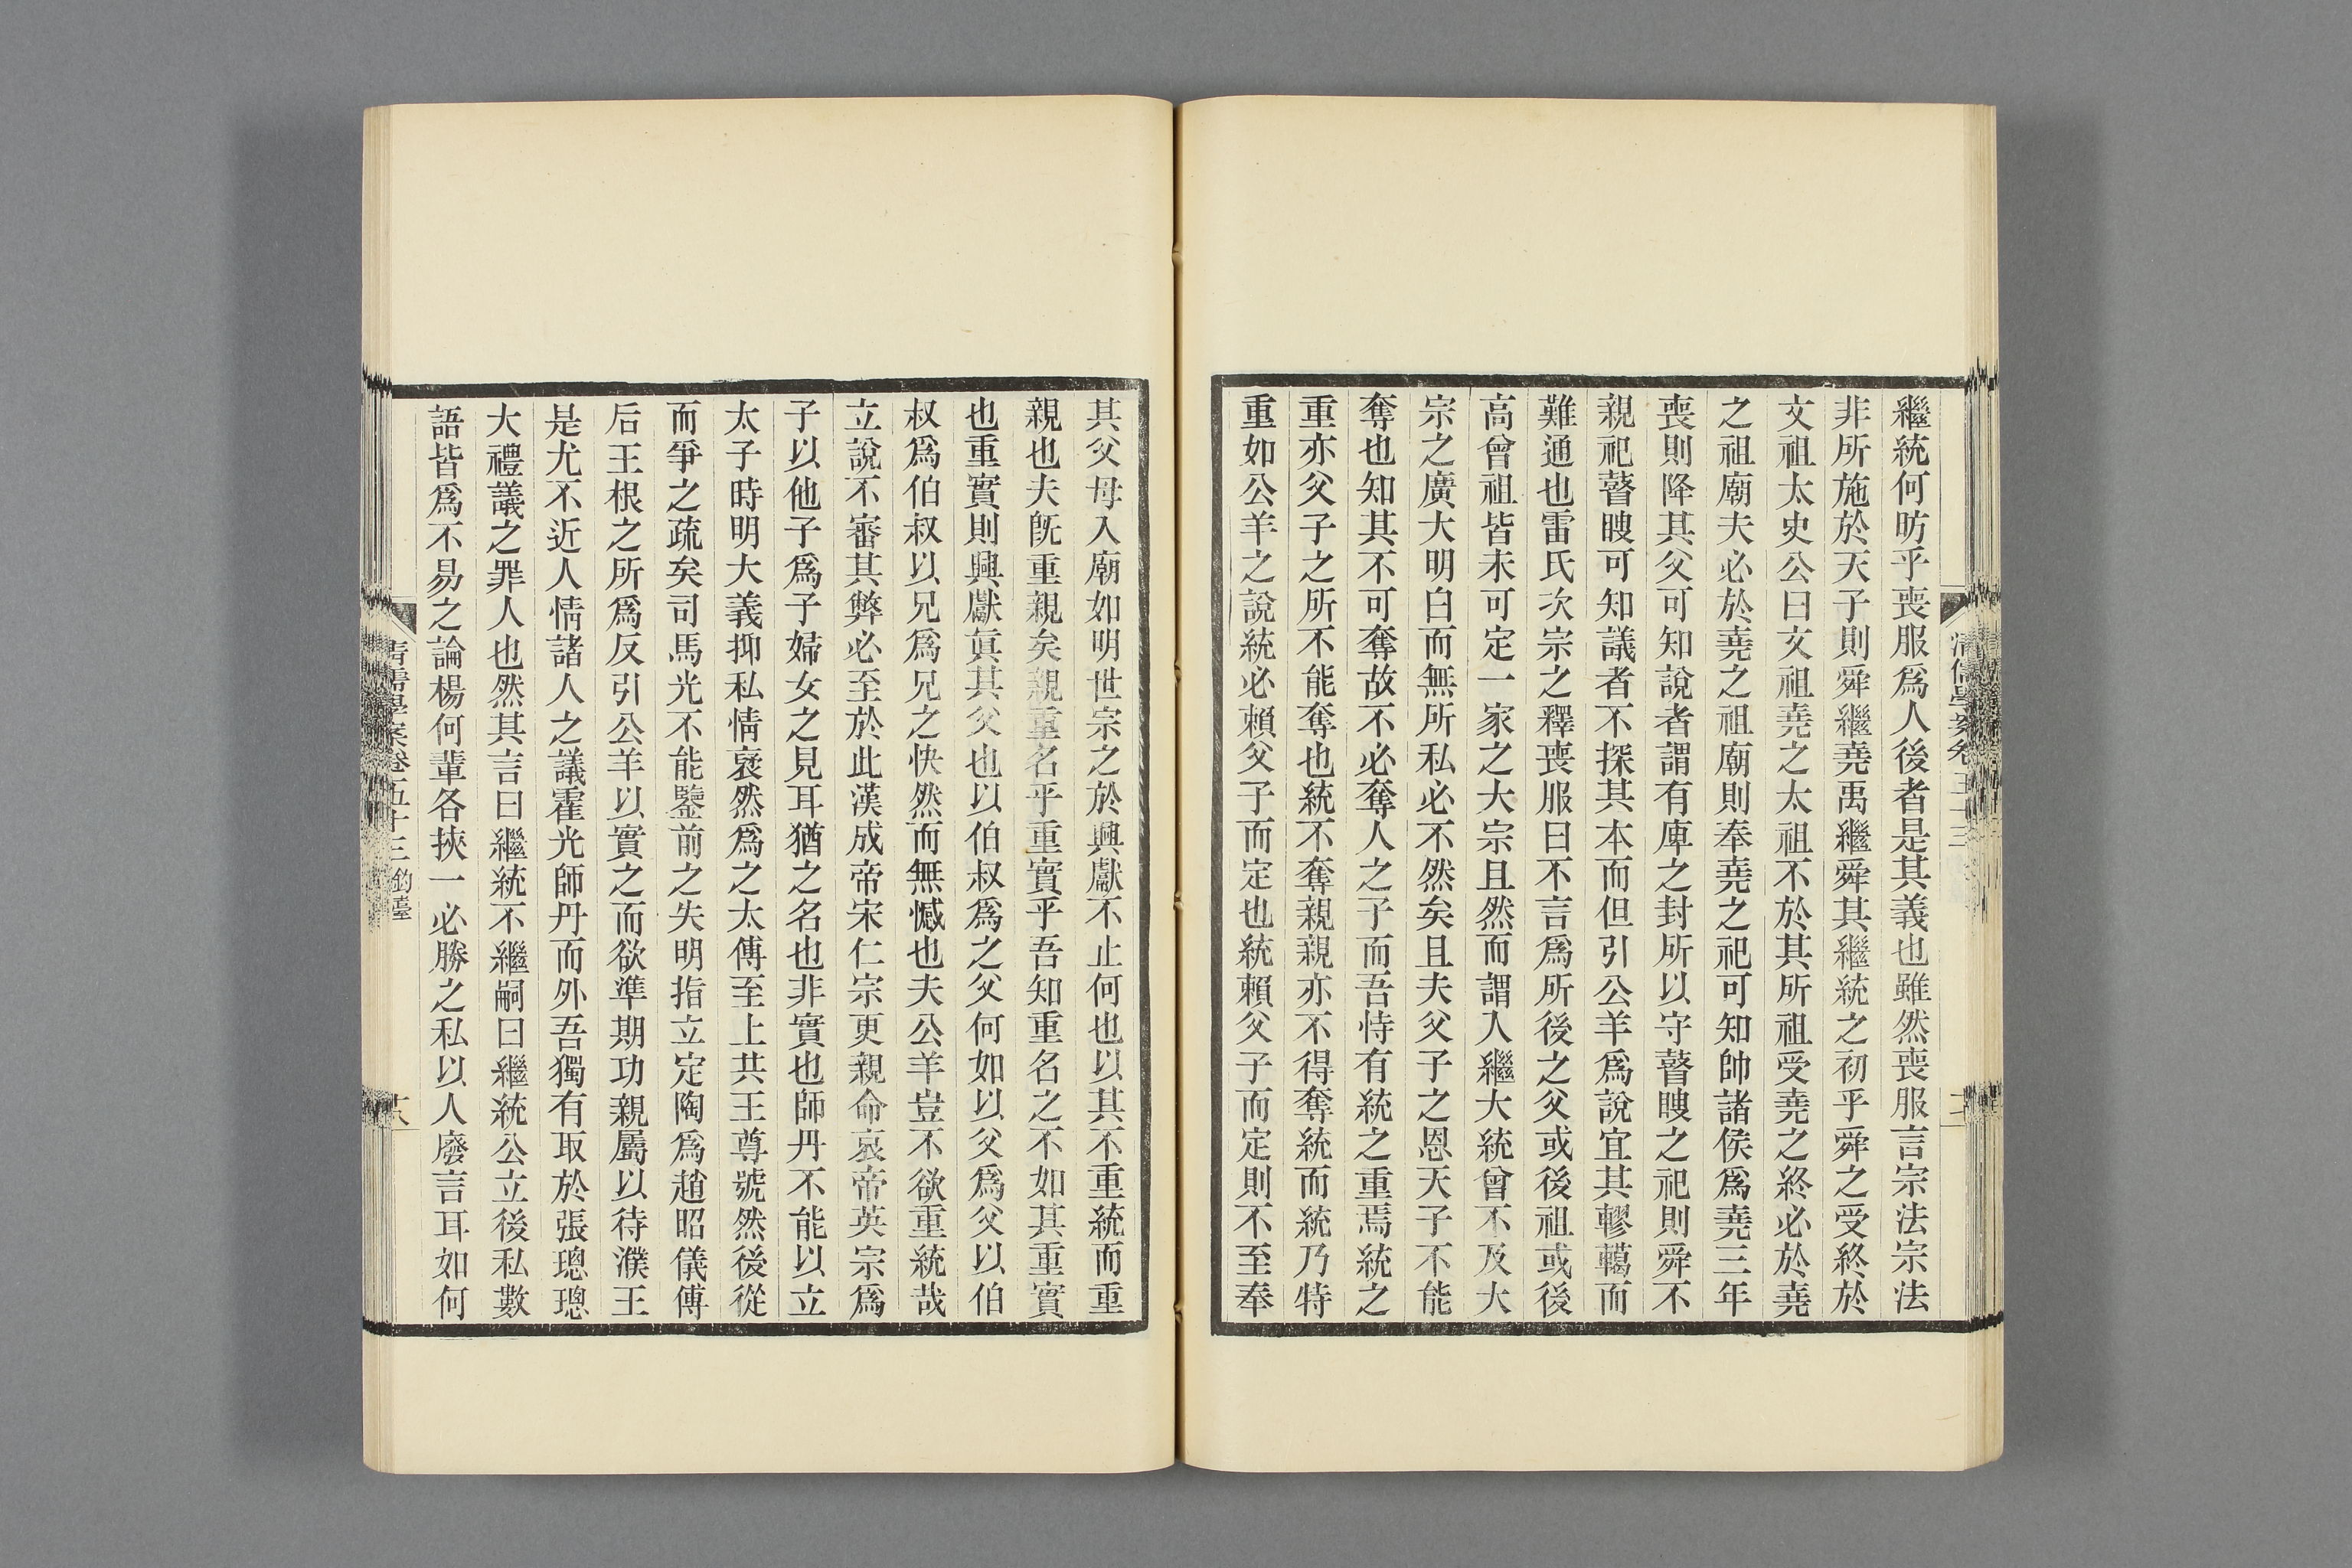 繼統何昉乎喪服爲人後者是其義也雖然喪服言宗法宗法
非所施於天子則舜繼堯禹繼舜其繼統之初乎舜之受終於
文祖太史公曰文祖堯之太祖不於其所祖受堯之終必於堯
之祖廟夫必於堯之祖廟則奉堯之祀可知帥諸侯爲堯三年
喪則降其父可知說者謂有庳之封所以守瞽瞍之祀則舜不
親祀瞽瞍可知議者不探其本而但引公羊爲說宜其轇轕而
難通也雷氏次宗之釋喪服曰不言爲所後之父或後祖或後
高曾祖皆未可定一家之大宗且然而謂人繼大統曾不及大
宗之廣大明白而無所私必不然矣且夫父子之恩天子不能
奪也知其不可奪故不必奪人之子而吾恃有統之重焉統之
重亦父子之所不能奪也統不奪親親亦不得奪統而統乃特
重如公羊之說統必賴父子而定也統賴父子而定則不至奉
其父母入廟如明世宗之於興獻不止何也以其不重統而重
親也夫旣重親矣親重名乎重實乎吾知重名之不如其重實
也重實則興獻眞其父也以伯叔爲之父何如以父爲父以伯
叔爲伯叔以兄爲兄之快然而無憾也夫公羊豈不欲重統哉
立說不審其弊必至於此漢成帝宋仁宗更親命哀帝英宗爲
子以他子爲子婦女之見耳猶之名也非實也師丹不能以立
太子時明大義抑私情裦然爲之太傅至上共王尊號然後從
而爭之疏矣司馬光不能鑒前之失明指立定陶爲趙昭儀傅
后王根之所爲反引公羊以實之而欲準期功親屬以待濮王
是尤不近人情諸人之議霍光師丹而外吾獨有取於張璁璁
大禮議之罪人也然其言曰繼統不繼嗣曰繼統公立後私數
語皆爲不易之論楊何輩各挾一必勝之私以人廢言耳如何
清儒學案卷五十三 鈞臺